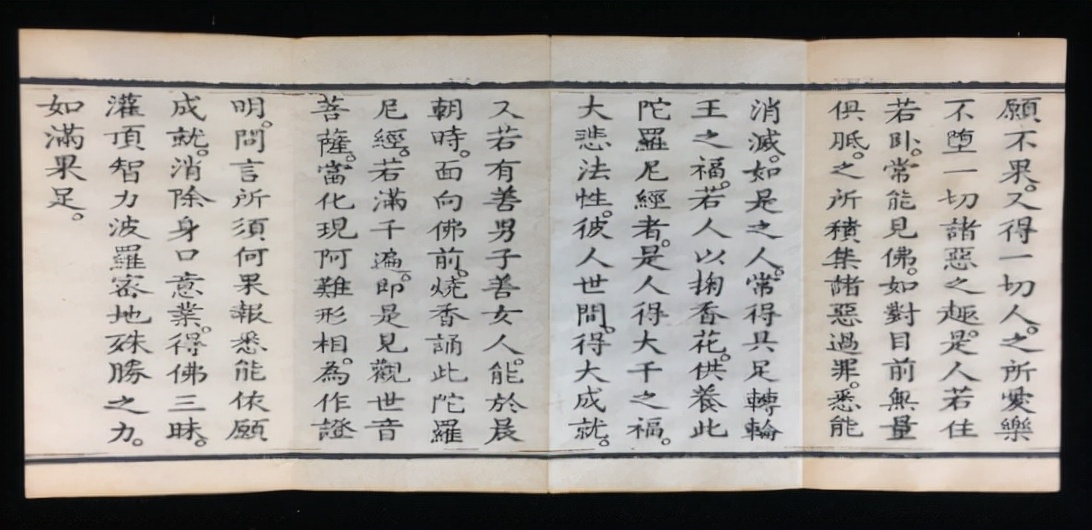 願不果。又得一切人。之所愛樂
不墮一切諸惡之趣。是人若住
若卧。常能見佛。如對目前無量
俱胝。之所積集諸惡過罪。悉能
消滅。如是之人。常得具足轉輪
王之福。若人以掬香花。供養此
陀羅尼經者。是人得大千之福。
大悲法性。彼人世間。得大成就。
又若有善男子善女人。能於晨
朝時。面向佛前。燒香誦此陀羅
尼經。若滿千遍。即是見觀世音
菩薩。當化現阿難形相。為作證
明。問言所須何果報悉能依願
成就。消除身口意業。得佛三昧。
灌頂智力波羅密地殊勝之力。
如滿果足。